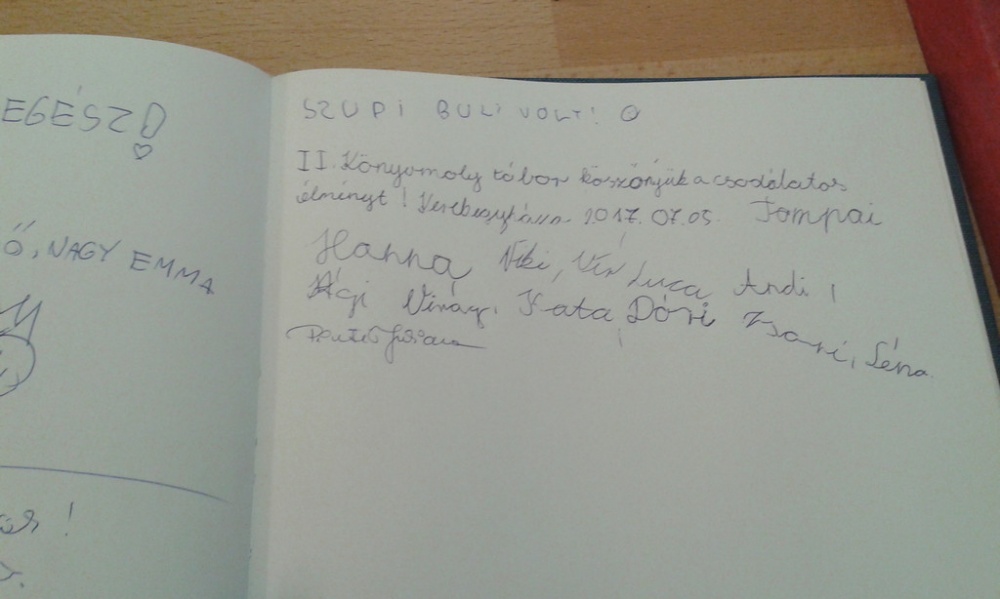 EGÉSZ!
Ő, NAGY EMMA
SZUPI BULI VOLT!
II. Könyvmoly tábor köszönjük a csodálatos
élményt! Veresegyháza 2017. 07. 05. Tompai
Hanna Niki, Luca Andi,
Ági Virág, Kata Dóri Zsani, Léna